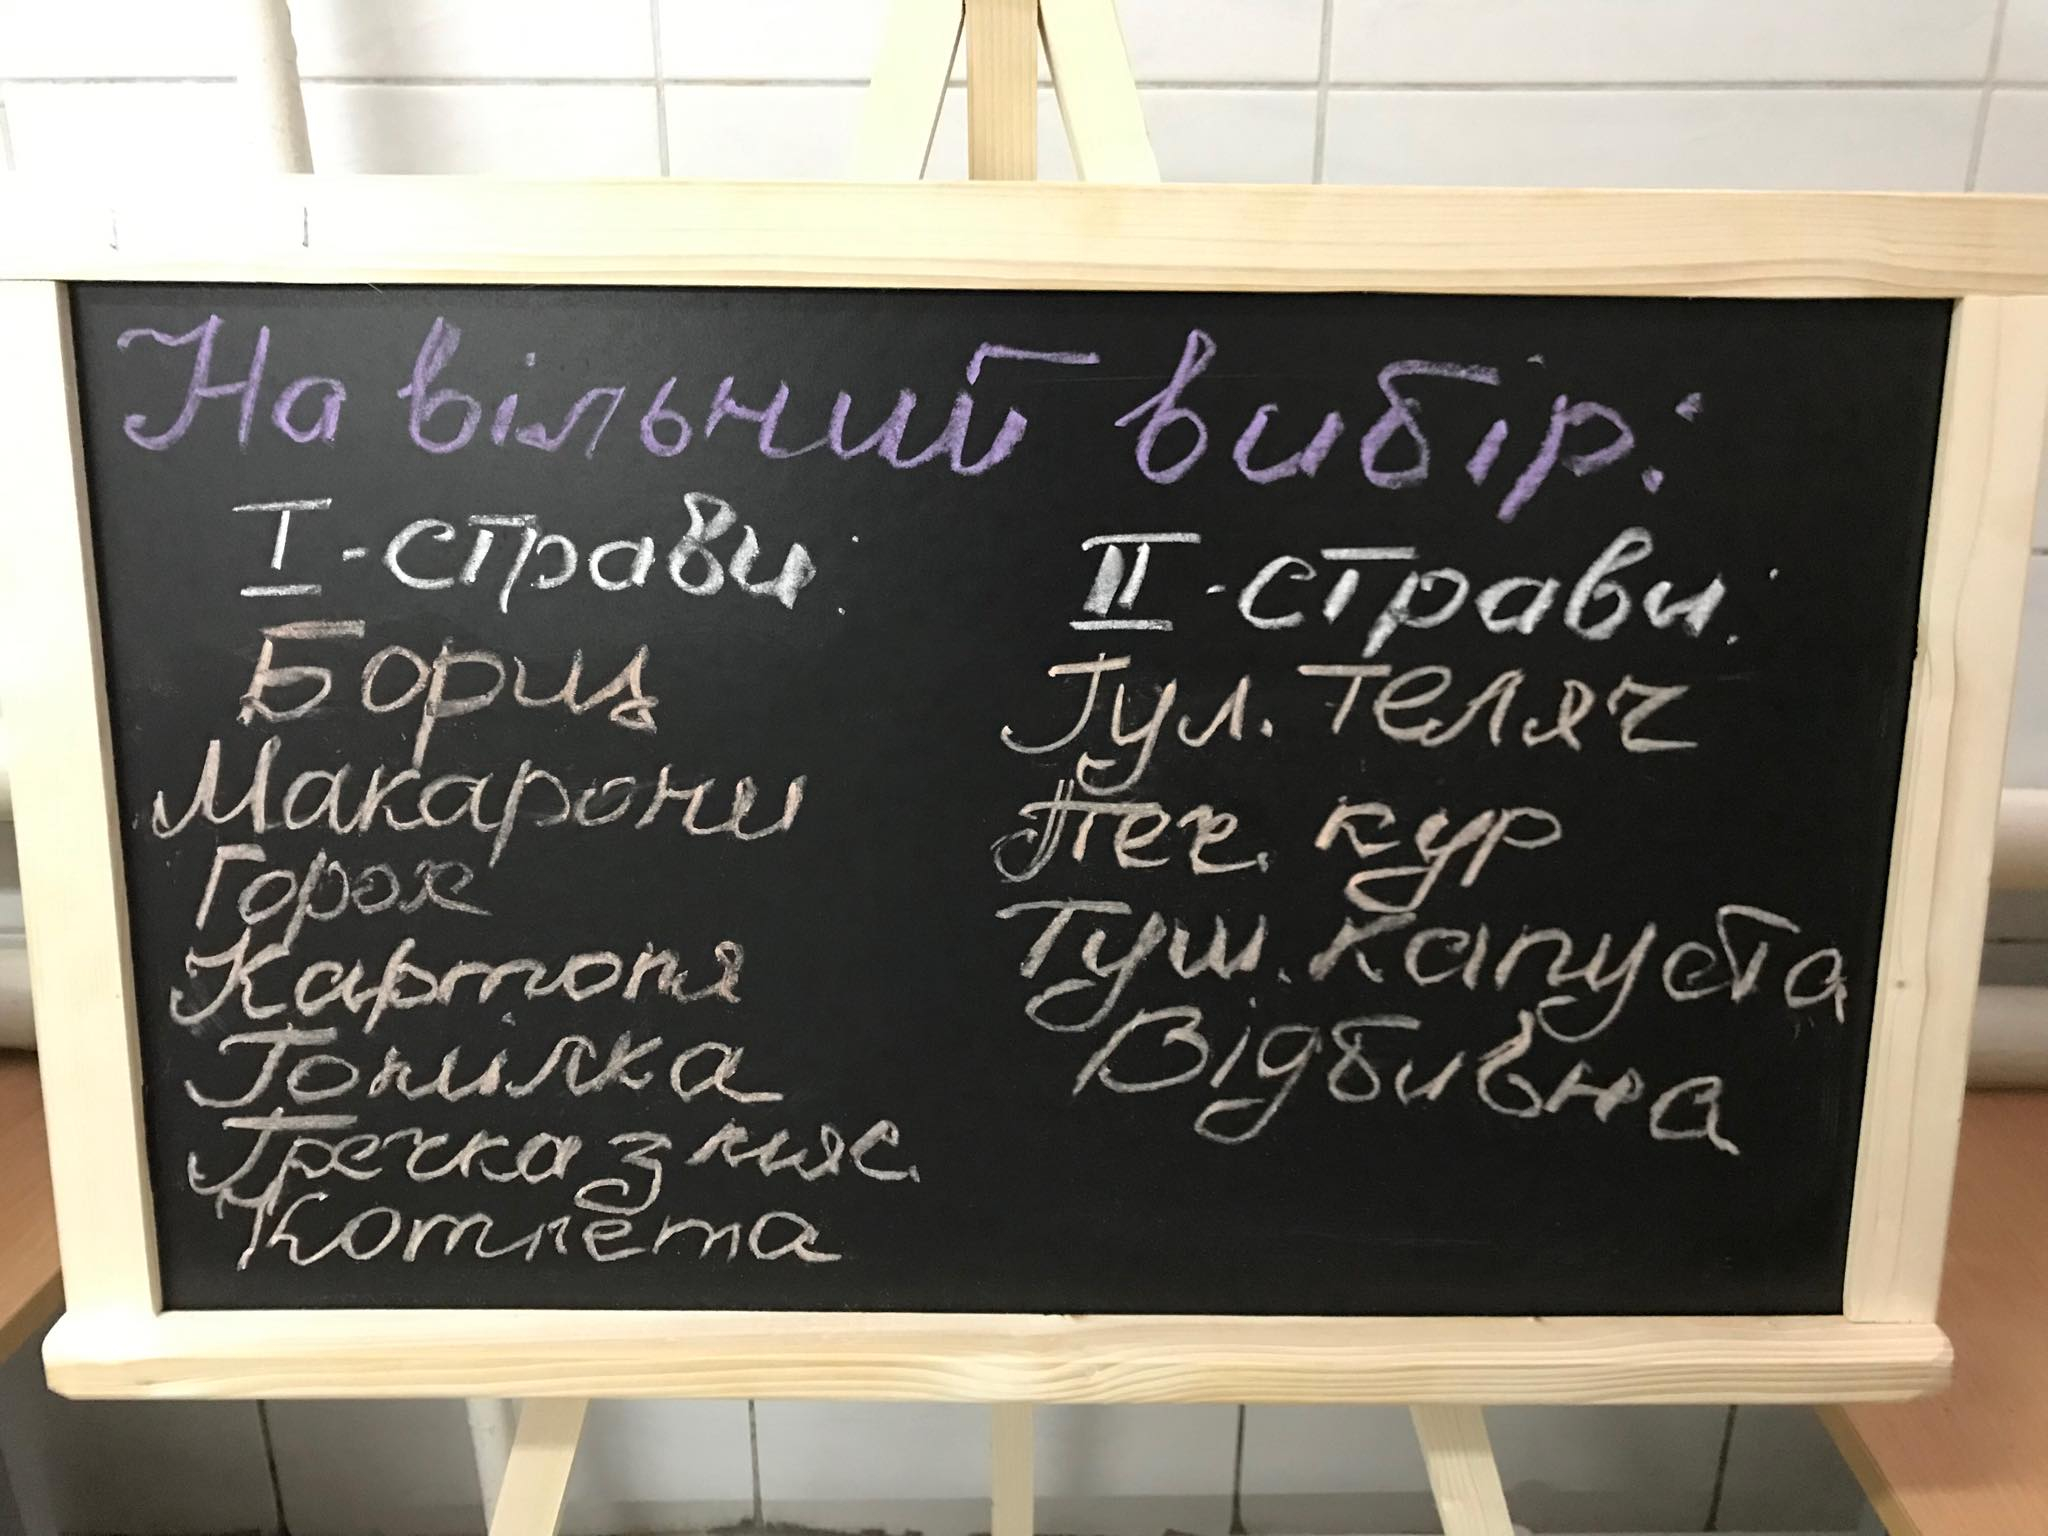 На вільний вибір:
I-страви:
Борщ
Макарони
Горох
Картопля
Гонілка
Гречка з мяс.
Котлета
II-страви:
Гул. теляч
Печ. кур
Туш. капуста
Відбивна